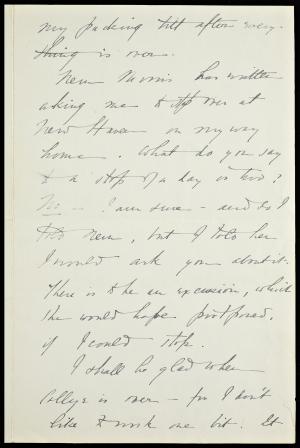 my packing till after every-
thing is over.
Nem Morris has written
asking me to stop over at
New Haven on my way
home. What do you say
to a stop of a day or two?
No - I am sure - and so I
told Nem, but I told her
I would ask you about it.
There is to be an excursion, which
she would hope postponed,
if I could stop.
I shall be glad when
College is over - for I don't
like to work one bit. It